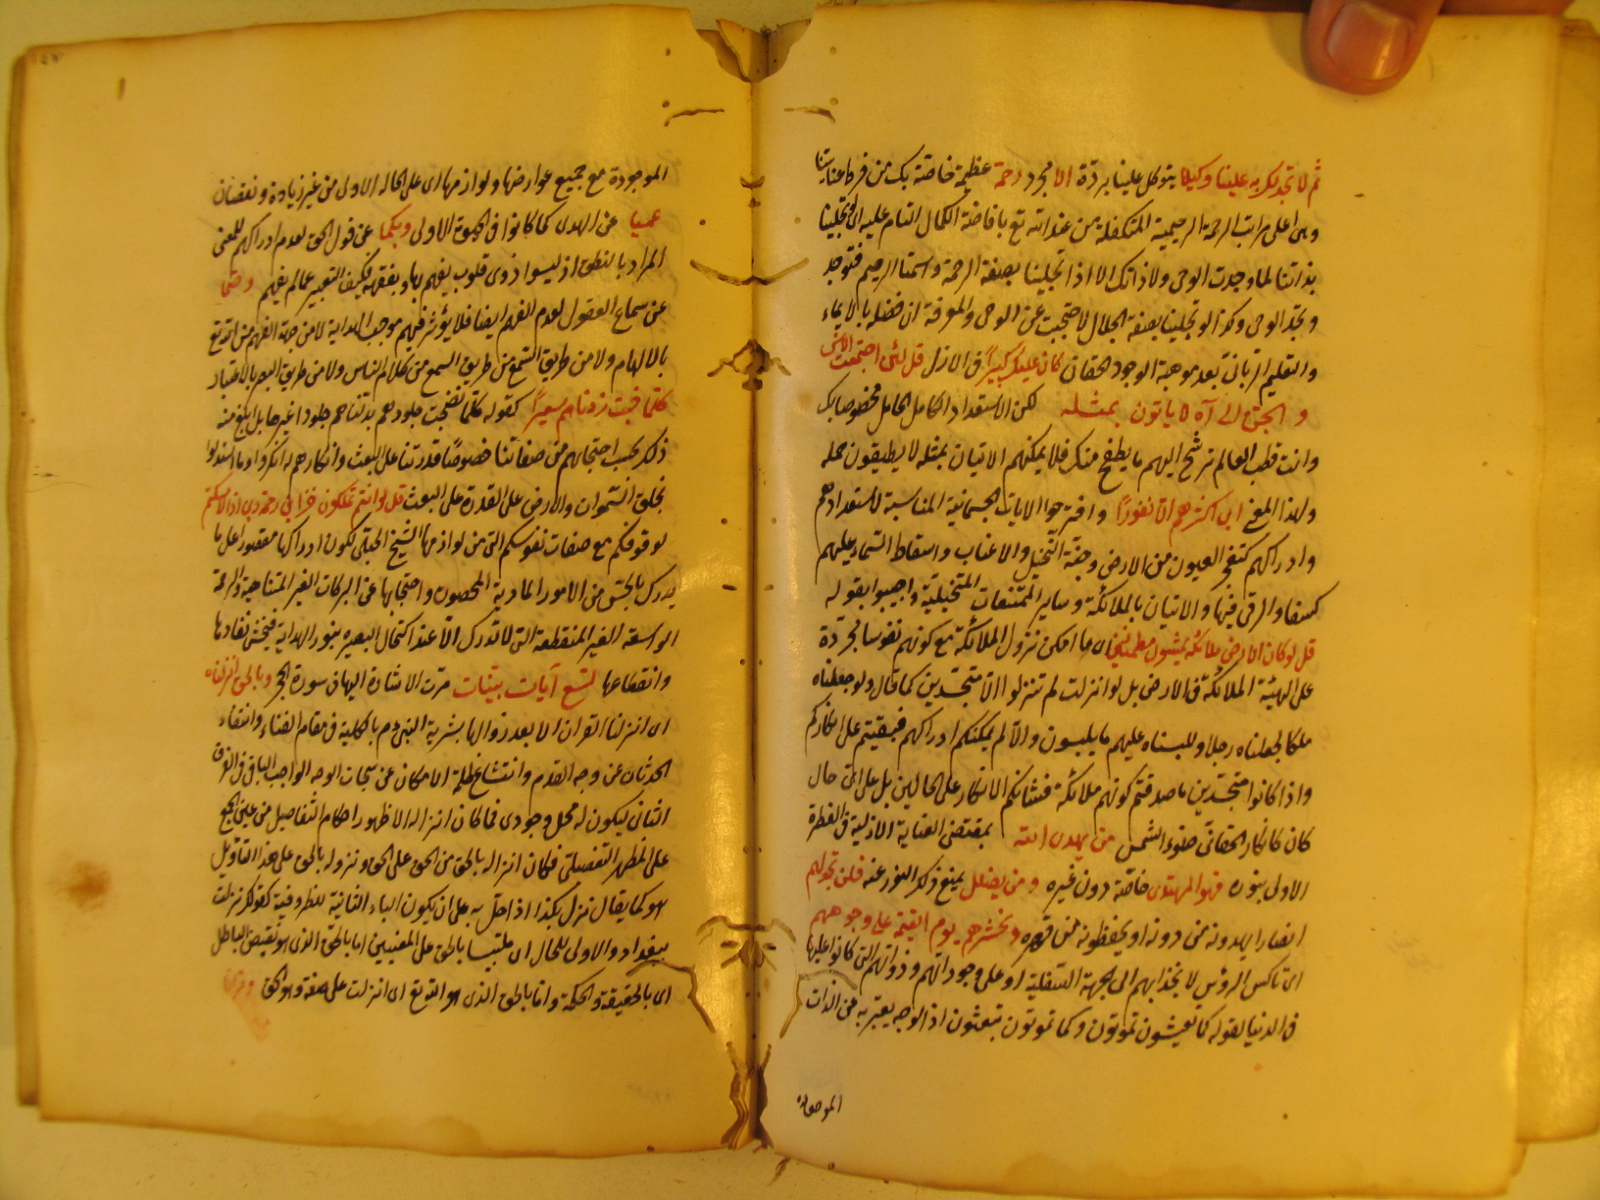 ثم لا تجد لك به علينا وكيلا يتوكل علينا برده الا مجرد رحمة عظيمة خاصة بك من فرط عنايتنا
وهى اعلى مراتب الرحمة الرحيمية المتكفلة من عند الله تع بافاضة الكمال التام عليه اى لو تجلينا
بذاتنا لما وجدت الوحى ولا ذاتك الا اذا تجلينا بصفة الرحمة واسمنا الرحيم فتوجد
وتجد الوحى وكذا لو تجلينا بصفة الجلال لاحتجبت عن الوحى والمعرفة ان فضله بالايحاء
والتعليم الربانى بعد موهبة الوجود الحقانى كان عليك كبيرا فى الازل قل لئن اجتمعت الانس
و الجن الى آه لا ياتون بمثله لكن الاستعداد الكامل الحامل مخصوصا بك
وانت قطب العالم ترشح اليهم ما يطفح منك فلا يمكنهم الاتيان بمثله لا يطيقون حمله
ولهذا المعنى ابى اكثرهم الا نفورا واقترحوا الايات الجسمانية المناسبة لاستعدادهم
وادراكهم كتفجر العيون من الارض وجنة النخيل والاعناب واسقاط السماء عليهم
كسفا والرقى فيها والاتيان بالملائكة وساير الممتنعات المتخيلة واجيبوا بقوله
قل لو كان فى الارض ملائكة يمشون مطمئنين اى ما امكن نزول الملائكة مع كونهم نفوسا مجردة
على الهيئة الملائكة فى الارض بل لو انزلت لم تنزلوا الا متجسدين كما قال ولو جعلناه
ملكا لجعلناه رجلا وللبسنا عليهم ما يلبسون والا لم يمكنكم ادراكهم فبقيتم على انكاركم
واذا كانوا متجسدين ما صدقتم كونهم ملائكة فشانكم الانكار على الحالين بل على اى حال
كان كانكار الخفاش ضوء الشمس من يهدى الله بمقتضى العناية الازلية فى الفطرة
الاولى بنوره فهو المهتدى خاصة دون غيره ومن يضلل بمنع ذلك النور عنه فلن تجد لهم
انصارا يهدونه من دونه او يحفظونه من قهره ونحشرهم يوم القيمة على وجوههم
اى ناكس الرؤس لانجذابهم الى الجهة السفلية او على وجوداتهم وذواتهم التى كانوا عليها
فى الدنيا لقوله كما تعيشون تموتون وكما تموتون تبعثون اذ الوجه يعبر به من الذات
الموجودة
الموجودة مع جميع عوارضها ولوازمها اى على الحالة الاولى من غير زيادة ونقصان
عميا عن الهدى كما كانوا فى الحيوة الاولى وبكما عن قول الحق لعدم ادراكهم للمعنى
المراد بالنطق اذ ليسوا ذوى قلوب يفهم بها ويفقهه فكيف التعبير عما لم يفهم وصما
عن سماع المعقول لعدم الفهم ايضا فلا يؤثر فيهم موجب الهداية لا من جهة الفهم من الله تع
بالالهام ولا من طريق السمع من كلام الناس ولا من طريق البصر بالاعتبار
كلما خبت زدناهم سعيرا كقوله كلما نضجت جلودهم بدلناهم جلودا غيرها بل ابلغ منه
ذلك بسبب احتجابهم من صفاتنا خصوصا قدرتنا على البعث وانكارهم له انكروا وما استدلوا
بخلق السموات والارض على القدرة على البعث قل لو انتم تملكون خزائن رحمة ربى اذا لامسكتم
لوقوفكم مع صفات نفوسكم التى من لوازمها الشح الجبلى لكون ادراكها مقصورا على ما
يدرك بالحس من الامور المادية المحصورة واحتجابها عن البركات الغير المتناهية والرحمة
الواسعة الغير المنقطعة التى لا تدرك الا عند اكتحال البصيرة بنور الهداية فيخشى نفادها
وانقطاعها تسع آيات بينات مرت الاشارة اليها فى سورة الحجر وبالحق انزلناه
اى انزلنا القران الا بعد زوالها بشرية النبى عم بالكلية فى مقام الفناء وانتفاء
الحدثان عن وجه القدم وانتشاع ظلمة الامكان عن سبحات الوجه الواجب الباقى فى العرف
الثانى ليكون له محل وجودى فما كان انزاله الا ظهور احكام التفاصيل من عين الجمع
على المظهر التفصيلى فكان انزاله بالحق من الحق على الحق ونزوله بالحق على هذا التاويل
هو كما يقال نزل بكذا اذا حل به على ان يكون الباء الثانية للظرفية كقولك نزلت
ببغداد والاولى للحال اى ملتبسا بالحق على المعنيين اما بالحق الذى هو نقيض الباطل
اى بالحقيقة والحكمة واما بالحق الذى هو الله تع اى انزلت على صفة وهو الحق